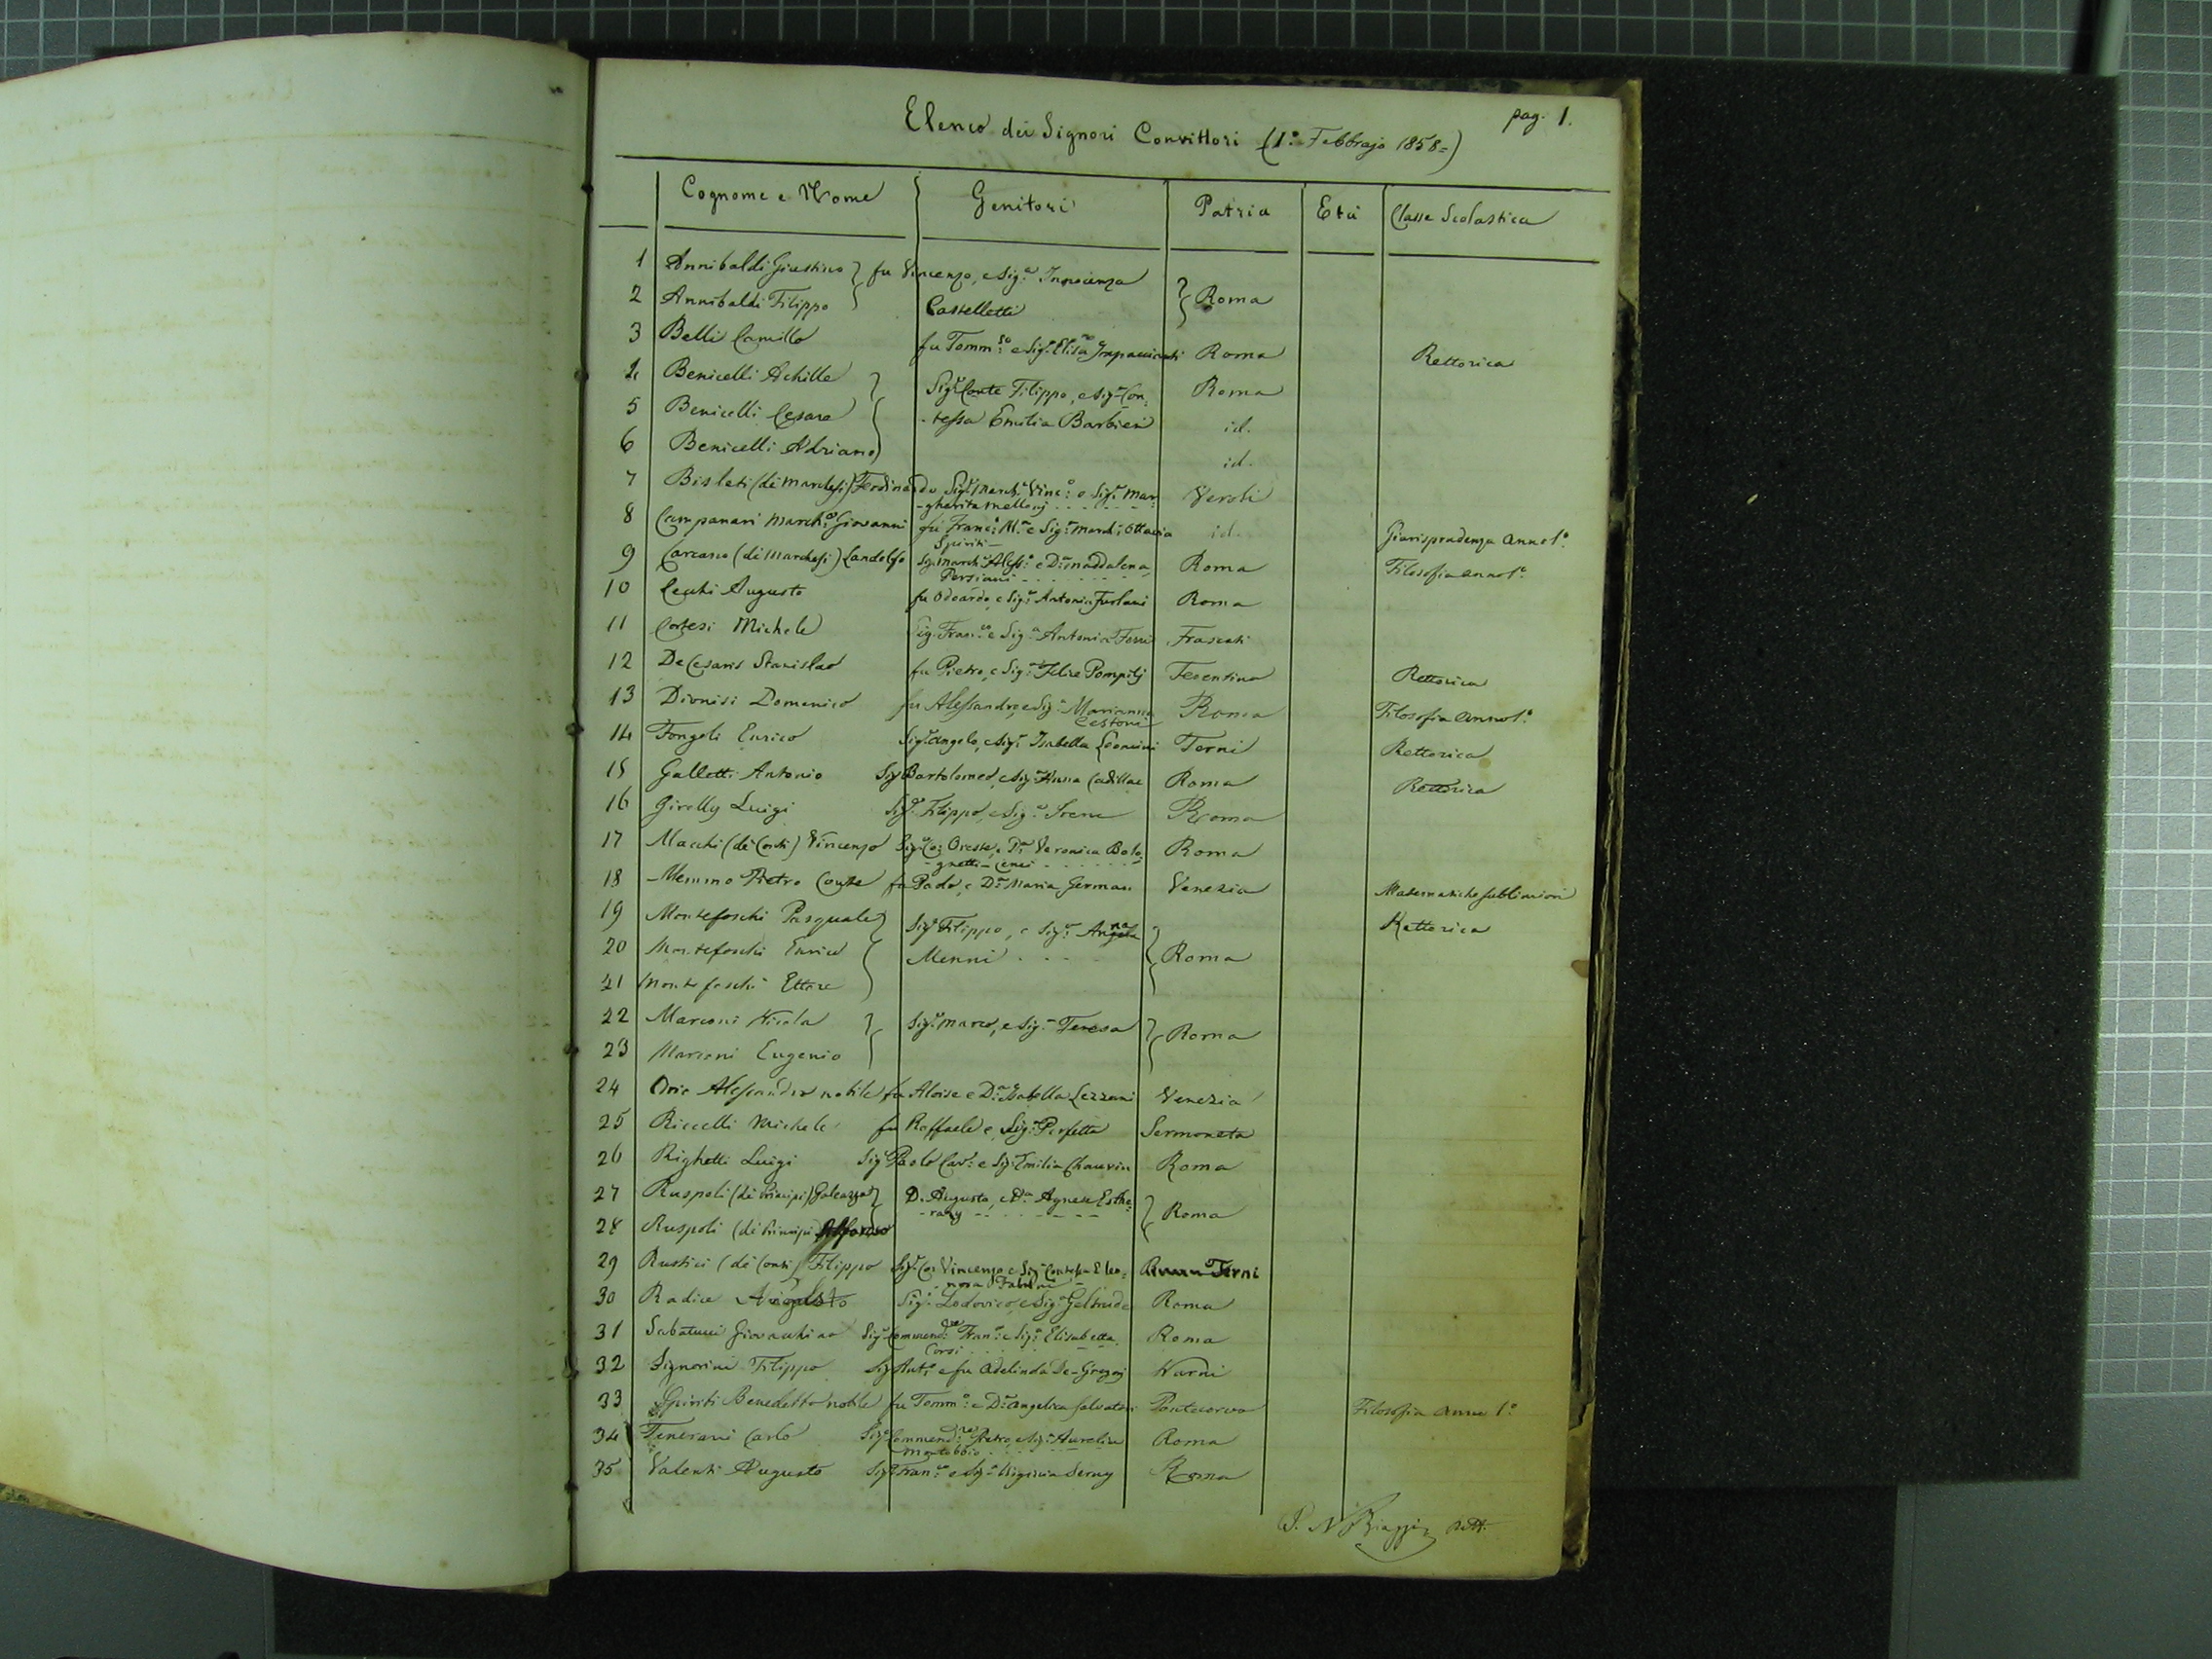 pag. 1.
Elenco dei Signori Convittori (1º Febbrajo 1858=)
Cognome e Nome Genitori Patria Età Classe Scolastica
1 Annibaldi Giustino fu Vincenzo, e Sig.ª Innocenza
2 Annibaldi Filippo Castelletti Roma
3 Belli Camillo fu Tomm.so e Sig.ª Elisa Impaccianti Roma Rettorica
4 Benicelli Achille Sig.r Conte Filippo, e Sig.ª Con= Roma
5 Benicelli Cesare -tessa Emilia Barbieri id.
6 Benicelli Adriano id.
7 Bisleti (dei Marchesi) Ferdinando Sig.r March.e Vinc.o e Sig.ª Mar= Veroli
-gherita Mellonj
8 Campanari March.e Giovanni fu Franc.o M.ª e Sig.ª March.ª Ottavia id. Giurisprudenza anno 1º
Spiriti
9 Carcano (dei Marchesi) Landolfo Sig. March.e Aless.o e D.ª Maddalena Roma Filosofia anno 1º
Persiani
10 Cecchi Augusto fu Odoardo, e Sig.ª Antonia Furlani Roma
11 Cortesi Michele Sig. Fran.co e Sig.ª Antonia Ferri Frascati
12 De Cesaris Stanislao fu Pietro, e Sig.ª Felice Pompilj Ferentino Rettorica
13 Dionisi Domenico fu Alessandro, e Sig.ª Marianna Roma Filosofia anno 1º
Cestoni
14 Fongoli Enrico Sig.r Angelo, e Sig.ª Isabella Leonini Terni Rettorica
15 Galletti Antonio Sig.r Bartolomeo, e Sig.ª Anna Cadillac Roma Rettorica
16 Girelly Luigi Sig.r Filippo, e Sig.ª Irene Roma
17 Macchi (dei Conti) Vincenzo Sig.r Co: Oreste, e D.ª Veronica Bolo= Roma
-gnetti-Cenci
18 Memmo Pietro Conte fu Paolo, e D.ª Maria German Venezia Matematiche sublimiori
19 Montefoschi Pasquale Sig.r Filippo, e Sig.ª Anna Rettorica
20 Montefoschi Enrico Menni Roma
21 Montefoschi Ettore
22 Marconi Nicola Sig.r Marco, e Sig.ª Teresa Roma
23 Marconi Eugenio
24 Orio Alessandro nobile fu Aloise e D.ª Isabella Lezzani Venezia
25 Riccelli Michele fu Raffaele e Sig.ª Perfetta Sermoneta
26 Righetti Luigi Sig.r Paolo Cav.e e Sig.ª Emilia Chauvin Roma
27 Ruspoli (dei Principi) Galeazzo D. Augusto, e D.ª Agnese Esthe=
-razy Roma
28 Ruspoli (dei Principi) Alfonso
29 Rustici (dei Conti) Filippo Sig.r Co: Vincenzo e Sig.ª Contessa Eleo= Roma Terni
nora Fabrini
30 Radice Augusto Sig.r Lodovico, e Sig.ª Geltrude Roma
31 Sabatucci Giovacchino Sig.r Commend.re Fran.o e Sig.ª Elisabetta Roma
Corsi
32 Signorini Filippo Sig.r Ant.o e fu Adelinda De-Gregorj Narni
33 Spiriti Benedetto nobile fu Tomm.o e D.ª Angelica Salvatori Pontecorvo Filosofia anno 1º
34 Tenerani Carlo Sig.r Commend.re Pietro, e Sig.ª Aurelia Roma
Montobbio
35 Valenti Augusto Sig.r Fran.co e Sig.ª Virginia Serny Roma
P. N. Biaggi rett.